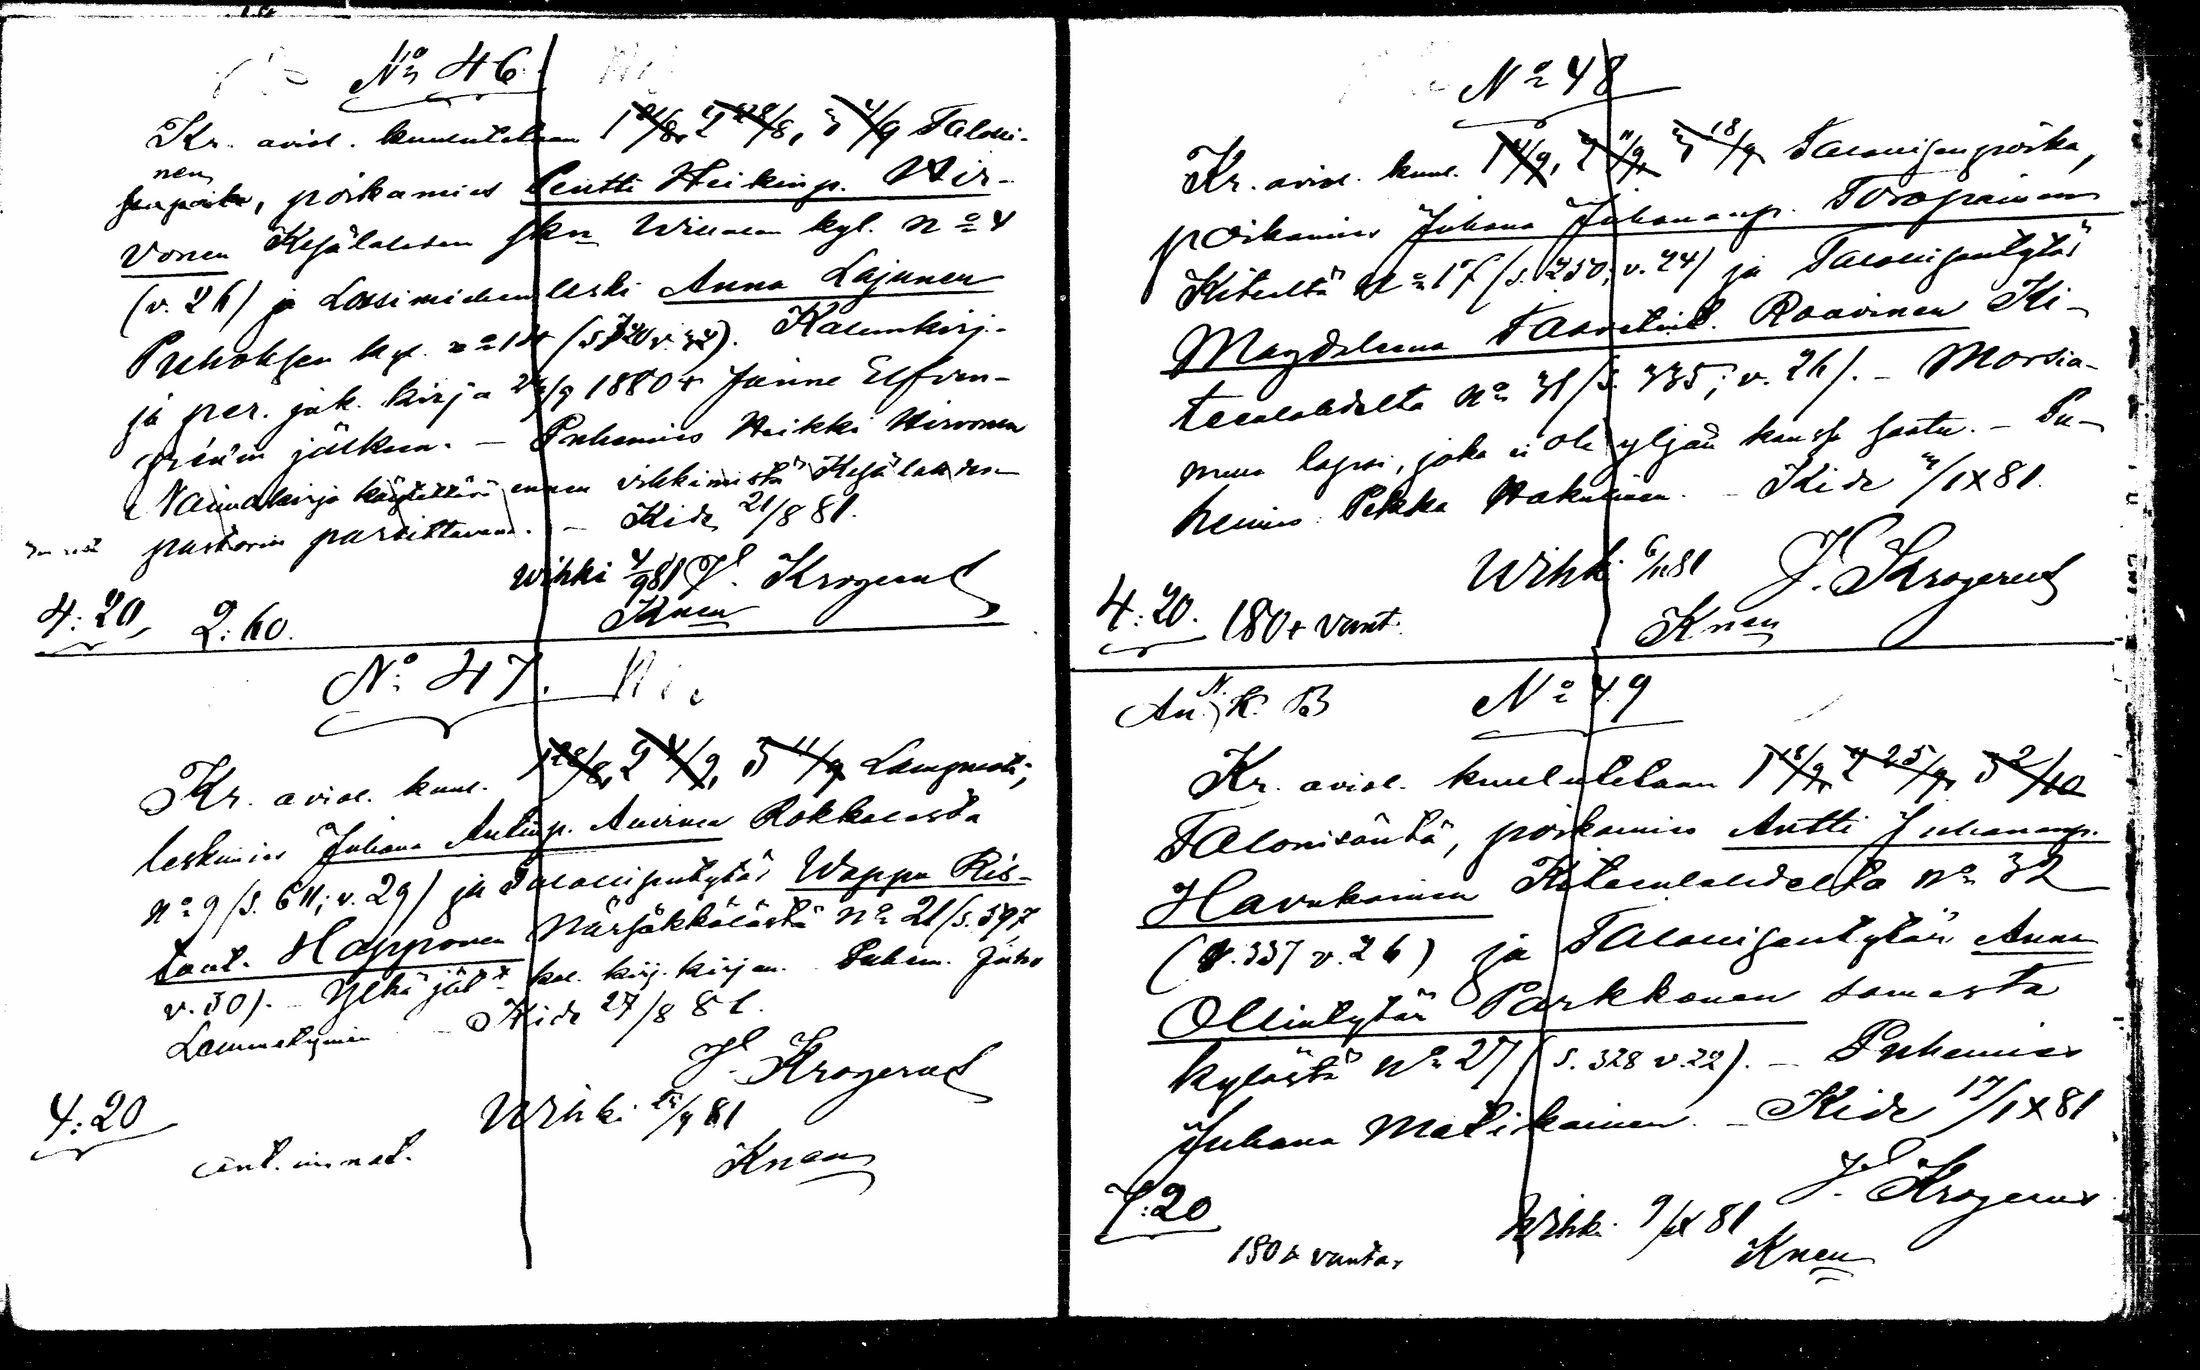 No 46.
Kr. aviol. kuulutetaan 1 21/8, 2 28/8, 3 4/9 Taloni-
nen
poika, poikamies Pentti Heikinp. Hir-
vonen Kesälahden skn Villalan kyl. no 4
(v. 26) ja Loisimiehen leski Anna Lajunen
Puhoksen kyl. no 14 (s. 720 v. 32). Kalunkirj.-
ja per. jak. kirja 1880 Janne Elfven-
grénin jälkeen. — Puhemies Heikki Hirvonen
Naimakirja käytettävä ennen vihkimistä Kesälahden
pastorin paraittavana. — Kide 21/8 81.
Wihki 4/9 81 J. Krogerus
Knen
4:20 2:60.
No 47.
Kr. aviol. kuul. 1 28/8, 2 4/9, 3 11/9 Lampuoti,
leskimies Juhana Antinp. Anirnea Rokkalasta
no 9 (s. 611; v. 29) ja Talonip. tytär Wappu Ris-
tont. Happonen Närsäkkälästä no 21 (s. 597
v. 30). — Ylkä jät. kal. kirj. kirjan. Puhem. Juho
Lammetyinen — Kide 27/8 81.
J. Krogerus
Wihki /9 81
Knen
4:20
No 48
Kr. aviol. kuul. 1 4/9, 2 11/9, 3 18/9 Talonisanpoika,
poikamies Juhana Juhananp. Toropainen
Kiteeltä no 17 (s. 250; v. 24) ja Talonisantytär
Magdaleena Taavetint. Raavinen Ki-
teenlahdelta no 31 (s. 335; v. 26). — Morsia-
mella lapsi, joka ei ole yljän kanssa saatu. — Pu-
hemies Pekka Hakulinen. — Kide 3/IX 81.
Wihki 6/11 81 J. Krogerus
4:20. 180+ vant. Knen
Au. K. B No 49
Kr. aviol. kuulutetaan 1 18/9, 2 25/9, 3 2/10
Talonisäntä, poikamies Antti Juhananp.
Havukainen Kiteenlahdelta no 32
(s. 337 v. 26) ja Talonisantytär Anna
Ollintytär Parkkonen samasta
kylästä no 27 (s. 328 v. 22). — Puhemies
Juhana Matikainen. — Kide 17/IX 81
J. Krogerus
7:20 Wihki 9/IX 81
180+ vanta. Knen